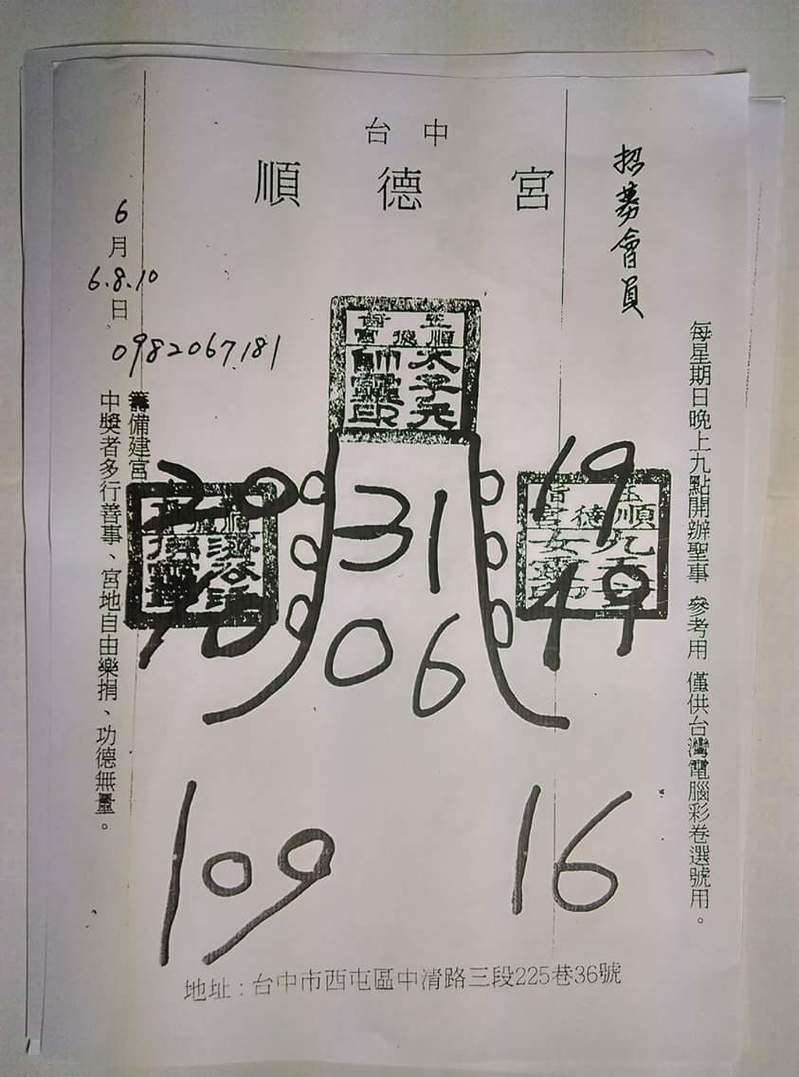 台中
順德宮
招募會員
每星期日晚上九點開辦聖事 參考用 僅供台灣電腦彩卷選號用。
6月
6.8.10日
0982067181
籌備建宮
中獎者多行善事、宮地自由樂捐、功德無量。
太子元
帥靈印
20
31
19
10
06
49
109
16
地址：台中市西屯區中清路三段225巷36號